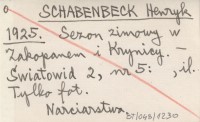 SCHABENBECK Henryk
1925. Sezon zimowy w
Zakopanem i Krynicy. -
Światowid 2, nr 5: , il.
Tylko fot.
Narciarstwo
BT/OGS/1230